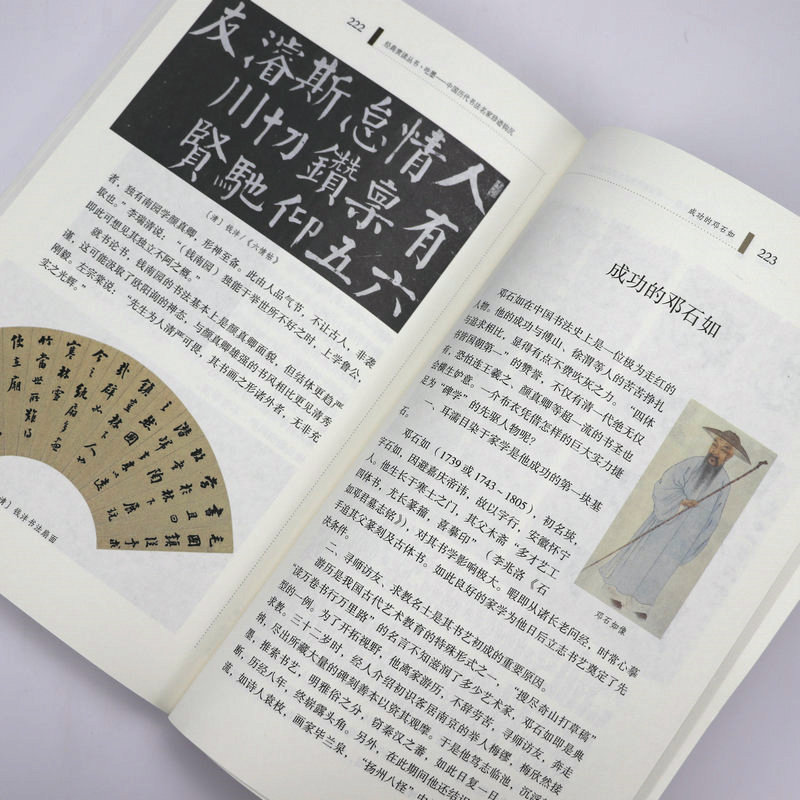 222
经典赏读丛书·吃墨——中国历代书法名家珍迹钩沉
人有六
情禀五
怠鑽仰
斯切馳
濬川賢
友
〔清〕钱沣/《六情帖》
者，独有南园学颜真卿，形神至备。此由人品气节，不让古人，非袭
取也。”李瑞清说：“（钱南园）独能于举世所不好之时，上学鲁公，
即此可想见其独立不阿之概。”
就书论书，钱南园的书法基本上是颜真卿面貌，但结体更趋严
谨，这可能汲取了欧阳询的神态，与颜真卿雄强的书风相比更见清秀
刚毅。左宗棠说：“先生为人清严可畏，其书画之形诸外者，无非充
实之光辉。”
清〕钱沣书法扇面
成功的邓石如
223
成功的邓石如
邓石如在中国书法史上是一位极为走红的
人物。他的成功与傅山、徐渭等人的苦苦挣扎
与追求相比，显得有点不费吹灰之力。“四体
书皆国朝第一”的赞誉，不仅有清一代绝无仅
有，恐怕连王羲之、颜真卿等超一流的书圣也
会横生妒意。一个布衣凭借怎样的巨大实力捷
足为“碑学”的先驱人物呢？
一、耳濡目染于家学是他成功的第一块基
石。
邓石如（1739 或 1743~1805），初名琰，
字石如，因避嘉庆帝讳，故以字行，安徽怀宁
人。他生长于寒士之门，其父木斋“多才艺工
四体书，尤长篆籀，喜摹印”（李兆洛《石
如邓君墓志铭》），对其书学影响极大。暇即从诸长老问经，时常心摹
手追其父篆刻及古体书。如此良好的家学为他日后立志书艺奠定了先
决条件。
邓石如像
二、寻师访友、求教名士是其书艺初成的重要原因。
游历是我国古代艺术教育的特殊形式之一，“搜尽奇山打草稿”
“读万卷书行万里路”的名言不知滋润了多少艺术家，邓石如即是典
型的一例。为了开拓视野，他离家游历，不辞劳苦，寻师访友，奔走
求教。三十二岁时，经人介绍初识客居南京的举人梅镠，梅欣然接
纳，尽出所藏大量的碑刻善本以资其观摩。于是他笃志临池，沉浮
墨，推索书艺，明雅俗之分，窃秦汉之蕃，如此日复一日
断，历经八年，终崭露头角。另外，在此期间他还结识
流，如诗人袁枚，画家毕兰泉，“扬州八怪”中